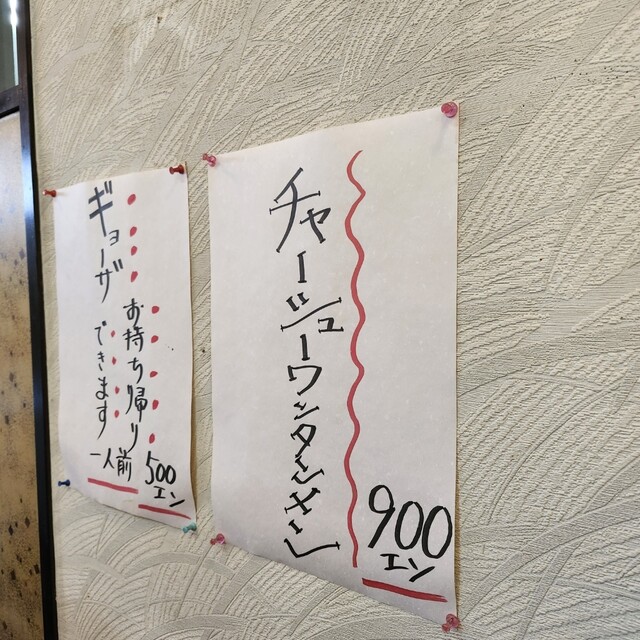 チャーシューワンタンメン
900
エン
ギョーザ
お持ち帰り
できます
一人前
500
エン